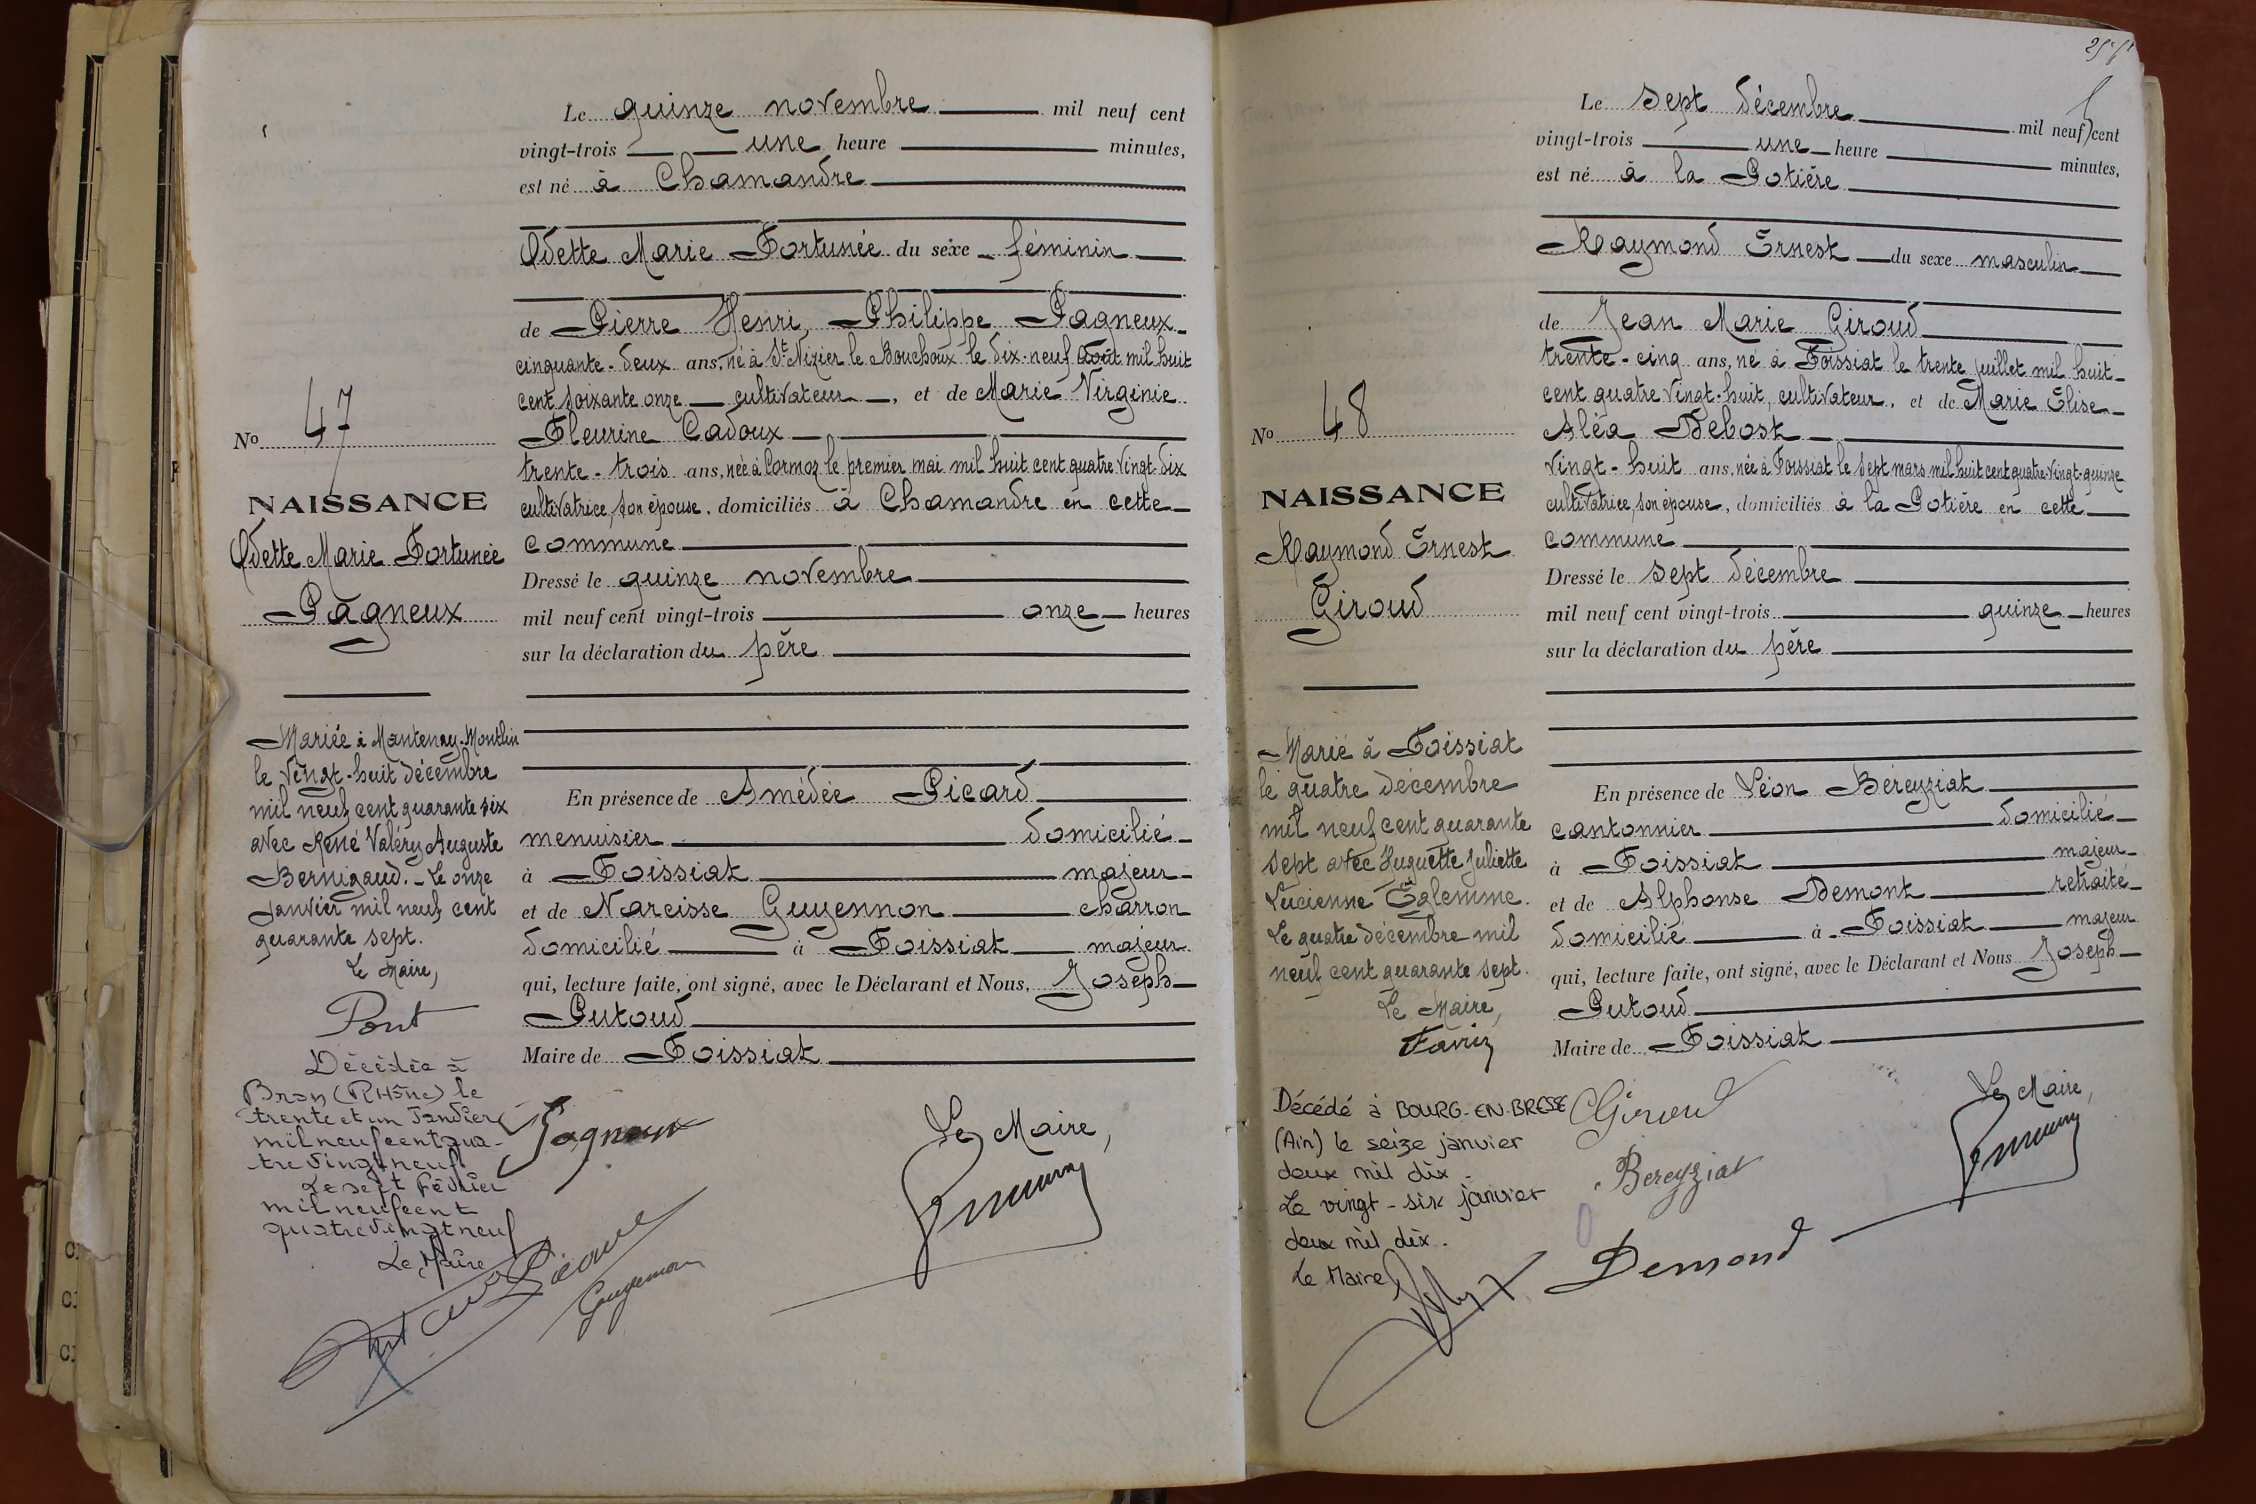 Le quinze novembre mil neuf cent
vingt-trois une heure minutes,
est né à Chamandre
Odette Marie Fortunée du sexe féminin
de Pierre Henri, Philippe Pagneux
cinquante-deux ans, né à St Nizier le Bouchoux le dix-neuf août mil huit
cent soixante onze cultivateur, et de Marie Virginie
Fleurine Cadoux
trente-trois ans, née à Cormoz le premier mai mil huit cent quatre vingt-dix
cultivatrice, son épouse, domiciliés à Chamandre en cette
commune
Dressé le quinze novembre
mil neuf cent vingt-trois onze heures
sur la déclaration du père
En présence de Amédée Picard
menuisier domicilié
à Foissiat majeur
et de Narcisse Guyennon charron
domicilié à Foissiat majeur
qui, lecture faite, ont signé, avec le Déclarant et Nous, Joseph
Putoud
Maire de Foissiat
Pagneux
Le Maire,
No 47
NAISSANCE
Odette Marie Fortunée
Pagneux
Mariée à Mantenay-Montlin
le vingt-huit décembre
mil neuf cent quarante six
avec René Valéry Auguste
Bernigaud. - Le onze
janvier mil neuf cent
quarante sept.
Le Maire,
Pont
Décédée à
Bron (RHône) le
trente et un Janvier
mil neuf cent qua-
tre vingt neuf
Le sept Février
mil neuf cent
quatre vingt neuf
Le Maire
Le sept décembre mil neuf cent
vingt-trois une heure minutes,
est né à la Potière
Raymond Ernest du sexe masculin
de Jean Marie Giroud
trente-cinq ans, né à Foissiat le trente juillet mil huit
cent quatre vingt-huit, cultivateur, et de Marie Élise
Aléa Debost
vingt-huit ans, née à Foissiat le sept mars mil huit cent quatre-vingt-quinze
cultivatrice, son épouse, domiciliés à la Potière en cette
commune
Dressé le sept décembre
mil neuf cent vingt-trois quinze heures
sur la déclaration du père
En présence de Léon Béreyziat
cantonnier domicilié
à Foissiat majeur
et de Alphonse Demont retraité
domicilié à Foissiat majeur
qui, lecture faite, ont signé, avec le Déclarant et Nous Joseph
Putoud
Maire de Foissiat
Giroud
Le Maire,
Bereyziat
Demond
No 48
NAISSANCE
Raymond Ernest
Giroud
Marié à Foissiat
le quatre décembre
mil neuf cent quarante
sept avec Huguette Juliette
Lucienne
Le quatre décembre mil
neuf cent quarante sept.
Le Maire,
Décédé à BOURG-EN-BRESSE
(Ain) le seize janvier
deux mil dix.
Le vingt-six janvier
deux mil dix.
Le Maire